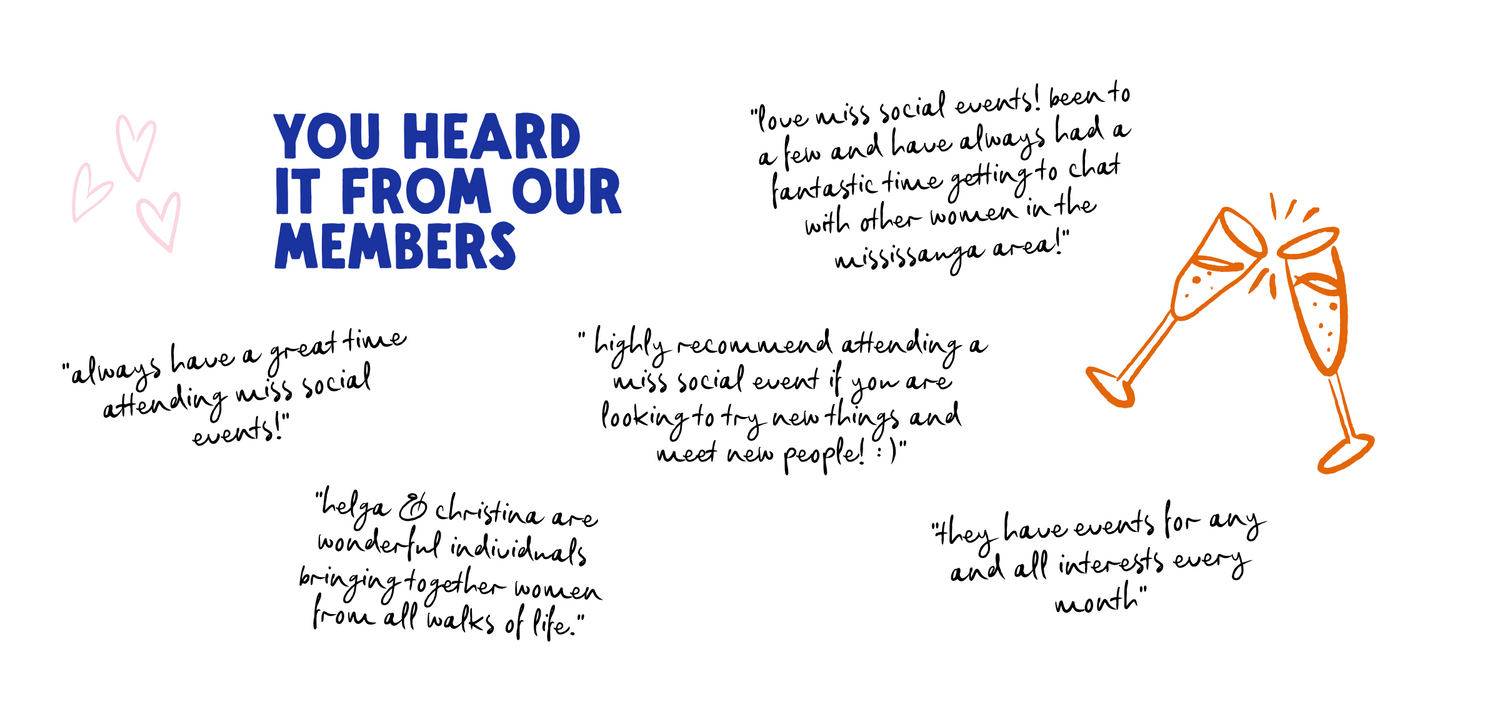 YOU HEARD
IT FROM OUR
MEMBERS
"love miss social events! been to
a few and have always had a
fantastic time getting to chat
with other women in the
mississauga area!"
"always have a great time
attending miss social
events!"
" highly recommend attending a
miss social event if you are
looking to try new things and
meet new people! :)"
"helga & christina are
wonderful individuals
bringing together women
from all walks of life."
"they have events for any
and all interests every
month"